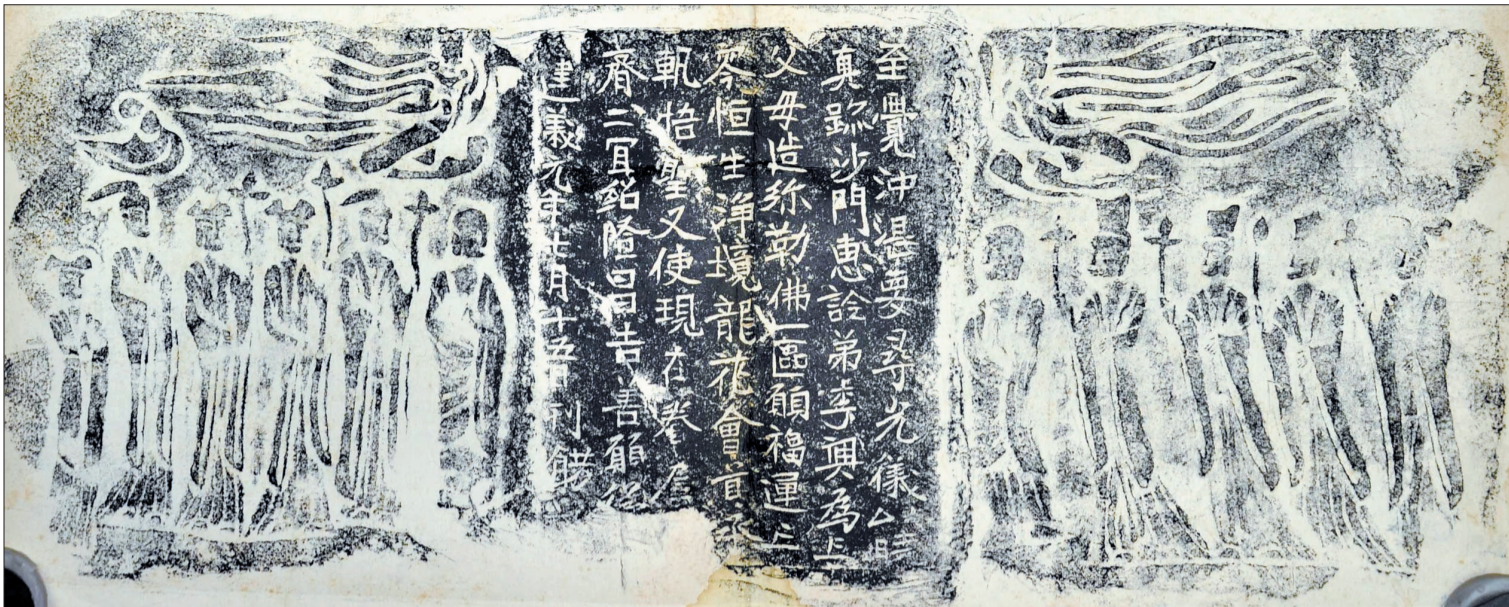 至覺沖湛要尋光儀亡時
真蹤沙門惠詮弟李興為亡
父母造弥勒佛一區願福運亡
零恒生淨境龍花會首承
軌悟聖又使現在眷屬
齊二宜紹隆日日吉善願從
建義元年七月十五日刊